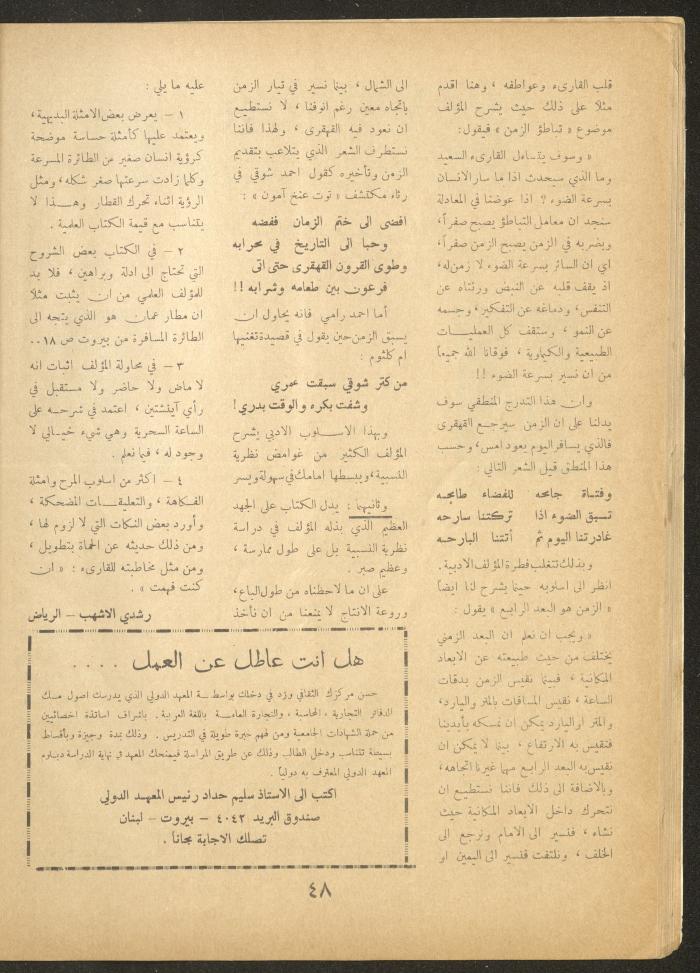 قلب القارىء وعواطفه ، وهنا اقدم
مثلا على ذلك حيث يشرح المؤلف
موضوع « تباطؤ الزمن » فيقول:
« وسوف يتساءل القارىء السعيد
وما الذي سيحدث اذا ما سار الانسان
بسرعة الضوء ? اذا عوضنا في المعادلة
سنجد ان معامل التباطؤ يصبح صفراً،
وبضربه في الزمن يصبح الزمن صفراً،
اي ان السائر بسرعة الضوء لا زمن له،
اذ يقف قلبه عن النبض ورئتاه عن
التنفس، ودماغه عن التفكير، وجسمه
عن النمو ، وستقف كل العمليات
الطبيعية والكيماوية ، فوقانا الله جميعاً
من ان نسير بسرعة الضوء !!
وان هذا التدرج المنطقي سوف
يدلنا على ان الزمن سيرجع القهقرى
فالذي يسافر اليوم يعود امس، وحسب
هذا المنطق قيل الشعر التالي :
وفتاة جامحه للفضاء طامحه
تسبق الضوء اذا تركتنا سارحه
غادرتنا اليوم ثم أتتنا البارحه
وبذلك تتغلب فطرة المؤلف الادبية.
انظر الى اسلوبه حينما يشرح لنا ايضاً
« الزمن هو البعد الرابع » يقول :
« ويجب ان نعلم ان البعد الزمني
يختلف من حيث طبيعته عن الابعاد
المكانية ، فبينما يقيس الزمن بدقات
الساعة ، نقيس المسافات بالمتر واليارد،
والمتر او اليارد يمكن ان نمسكه بأيدينا
فنقيس به الارتفاع ، بينما لا يمكن ان
نقيس به البعد الرابع مهما غيرنا اتجاهه،
وبالاضافة الى ذلك فاننا نستطيع ان
نتحرك داخل الابعاد المكانية حيث
نشاء ، فنسير الى الامام ونرجع الى
الخلف ، ونلتفت فنسير الى اليمين او
الى الشمال ، بينما نسير في تيار الزمن
باتجاه معين رغم انوفنا ، لا نستطيع
ان نعود فيه القهقرى ، ولهذا فاننا
نستطرف الشعر الذي يتلاعب بتقديم
الزمن وتأخيره كقول احمد شوقي في
رثاء مكتشف « توت عنخ آمون » :
افضى الى ختم الزمان ففضه
وحبا الى التاريخ في محرابه
وطوى القرون القهقرى حتى اتى
فرعون بين طعامه وشرابه !!
أما احمد رامي فانه يحاول ان
يسبق الزمن حين يقول في قصيدة تغنيها
ام كلثوم :
من كتر شوقي سبقت عمري
وشفت بكره والوقت بدري !
وبهذا الاسلوب الادبي يشرح
المؤلف الكثير من غوامض نظرية
النسبية، ويبسطها امامك في سهولة ويسر
وثانيهما : يدل الكتاب على الجهد
العظيم الذي بذله المؤلف في دراسة
نظرية النسبية بل على طول ممارسة ،
وعظيم صبر .
على ان ما لاحظناه من طول الباع،
وروعة الانتاج لا يمنعنا من ان نأخذ
عليه ما يلي :
١ – يعرض بعض الامثلة البديهية،
ويعتمد عليها كأمثلة حساسة موضحة
كرؤية انسان صغير من الطائرة المسرعة
وكلما زادت سرعتها صغر شكله، ومثل
الرؤية اثناء تحرك القطار وهذا لا
يتناسب مع قيمة الكتاب العلمية .
٢ – في الكتاب بعض الشروح
التي تحتاج الى ادلة وبراهين ، فلا بد
للمؤلف العلمي من ان يثبت مثلا
ان مطار عمان هو الذي يتجه الى
الطائرة المسافرة من بيروت ص ١٨٠..
٣ – في محاولة المؤلف اثبات انه
لا ماض ولا حاضر ولا مستقبل في
رأي آينشتين ، اعتمد في شرحه على
الساعة السحرية وهي شيء خيالي لا
وجود له ، فيما نعلم .
٤ – اكثر من اسلوب المرح وامثلة
الفكاهة ، والتعليقات المضحكة ،
وأورد بعض النكات التي لا لزوم لها ،
ومن ذلك حديثه عن الحماة بتطويل ،
ومن مثل مخاطبته للقارىء : « ان
كنت فهمت » .
رشدي الاشهب – الرياض
هل انت عاطل عن العمل ....
حسن مركزك الثقافي وزد في دخلك بواسطة المعهد الدولي الذي يدرسك اصول مسك
الدفاتر التجارية ، المحاسبة ، والتجارة العامة باللغة العربية . باشراف اساتذة اخصائيين
من حملة الشهادات الجامعية ومن لهم خبرة طويلة في التدريس . وذلك بمدة وجيزة وبأقساط
بسيطة تتناسب ودخل الطالب وذلك عن طريق المراسلة فيمنحك المعهد في نهاية الدراسة دبلوم
المعهد الدولي المعترف به دولياً .
اكتب الى الاستاذ سليم حداد رئيس المعهد الدولي
صندوق البريد ٤٠٤٢ – بيروت – لبنان
تصلك الاجابة مجاناً .
٤٨